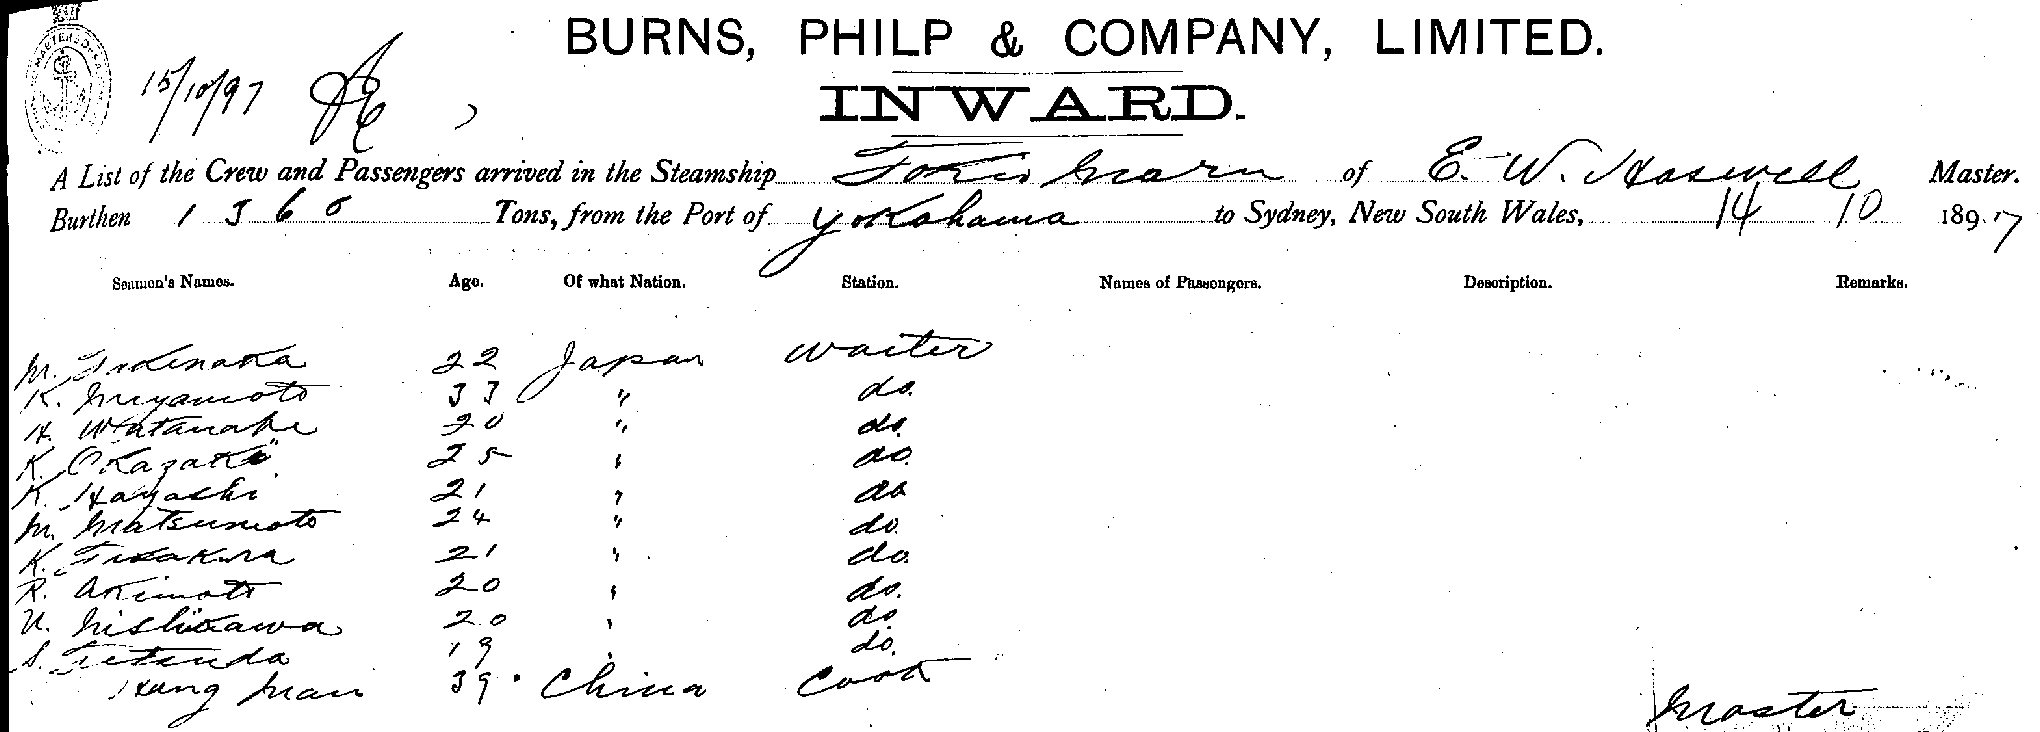 BURNS, PHILP & COMPANY, LIMITED.
15/10/97
INWARD.
A List of the Crew and Passengers arrived in the Steamship Tokio Maru of E. W. Haswell Master.
Burthen 1360 Tons, from the Port of Yokohama to Sydney, New South Wales, 14 10 1897
Seamen's Names. Age. Of what Nation. Station. Names of Passengers. Description. Remarks.
M. 22 Japan Waiter
K. Miyamoto 33 " do.
H. Watanabe 20 " do.
K. Okazaki 25 " do.
K. Hayashi 21 " do
M. Matsumoto 24 " do.
K. 21 " do.
R. Akimoto 20 " do.
U. Nishikawa 20 " do.
S. 19 do.
Hang Man 39 China Cook
Master